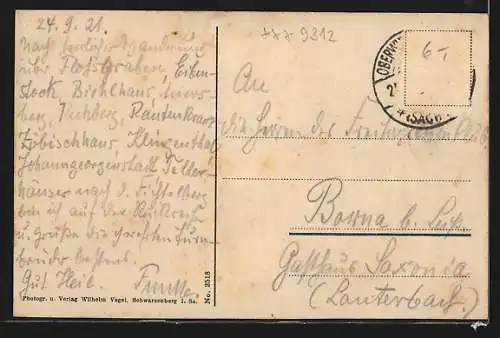 24. 9. 21.
Nach herrlicher Wanderung
über Floßgraben, Eiben-
stock, Bielhaus, Auers-
berg, Rautenkranz
Zöbischhaus, Klingenthal
Johanngeorgenstadt, Teller-
häuser nach d. Fichtelberg
bin ich auf der Rückreise
u. grüße die geehrten Turn-
brüder bestens.
Gut Heil.
Photogr. u. Verlag Wilhelm Vogel, Schwarzenberg i. Sa.
No. 2518
*** 9312
6,-
OBERW
(SACHS
An
die Herren des
Borna b. Leipz.
Gasthaus Saxonia
(Lauterbach)